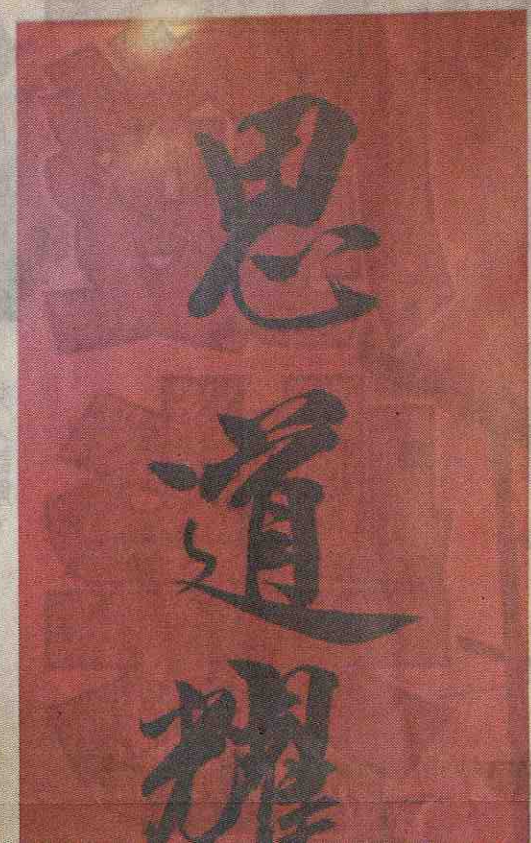 思道耀